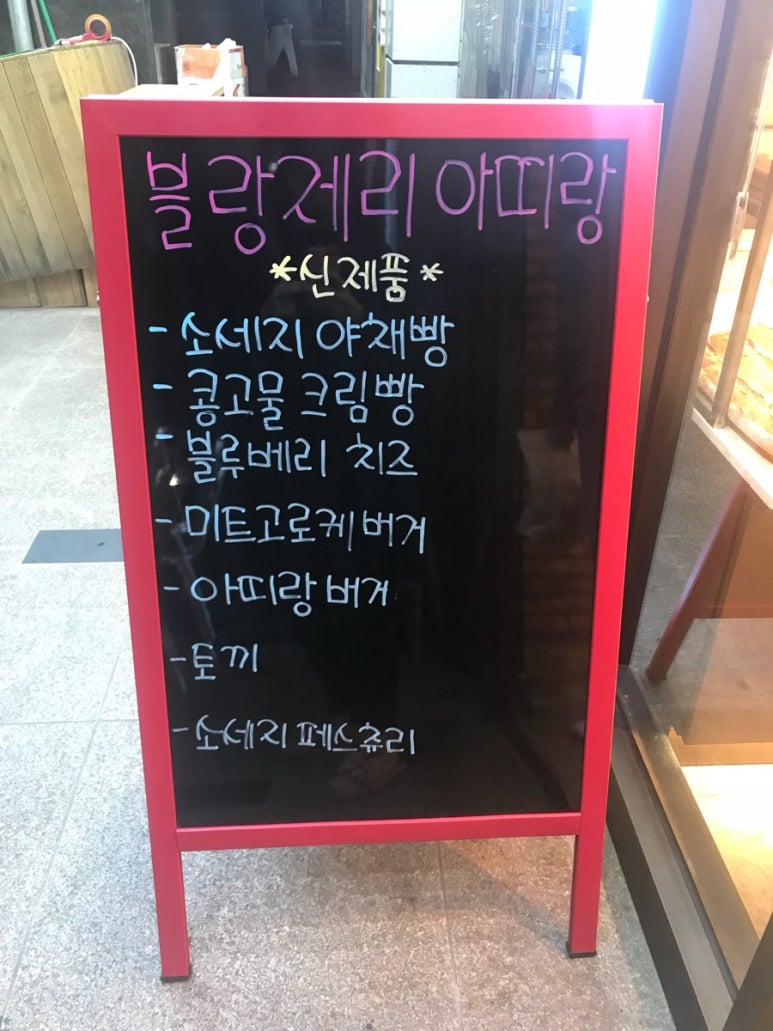 블랑제리 아띠랑
*신제품*
- 소세지 야채빵
- 콩고물 크림빵
- 블루베리 치즈
- 미트고로케버거
- 아띠랑버거
- 토끼
- 소세지 페스츄리